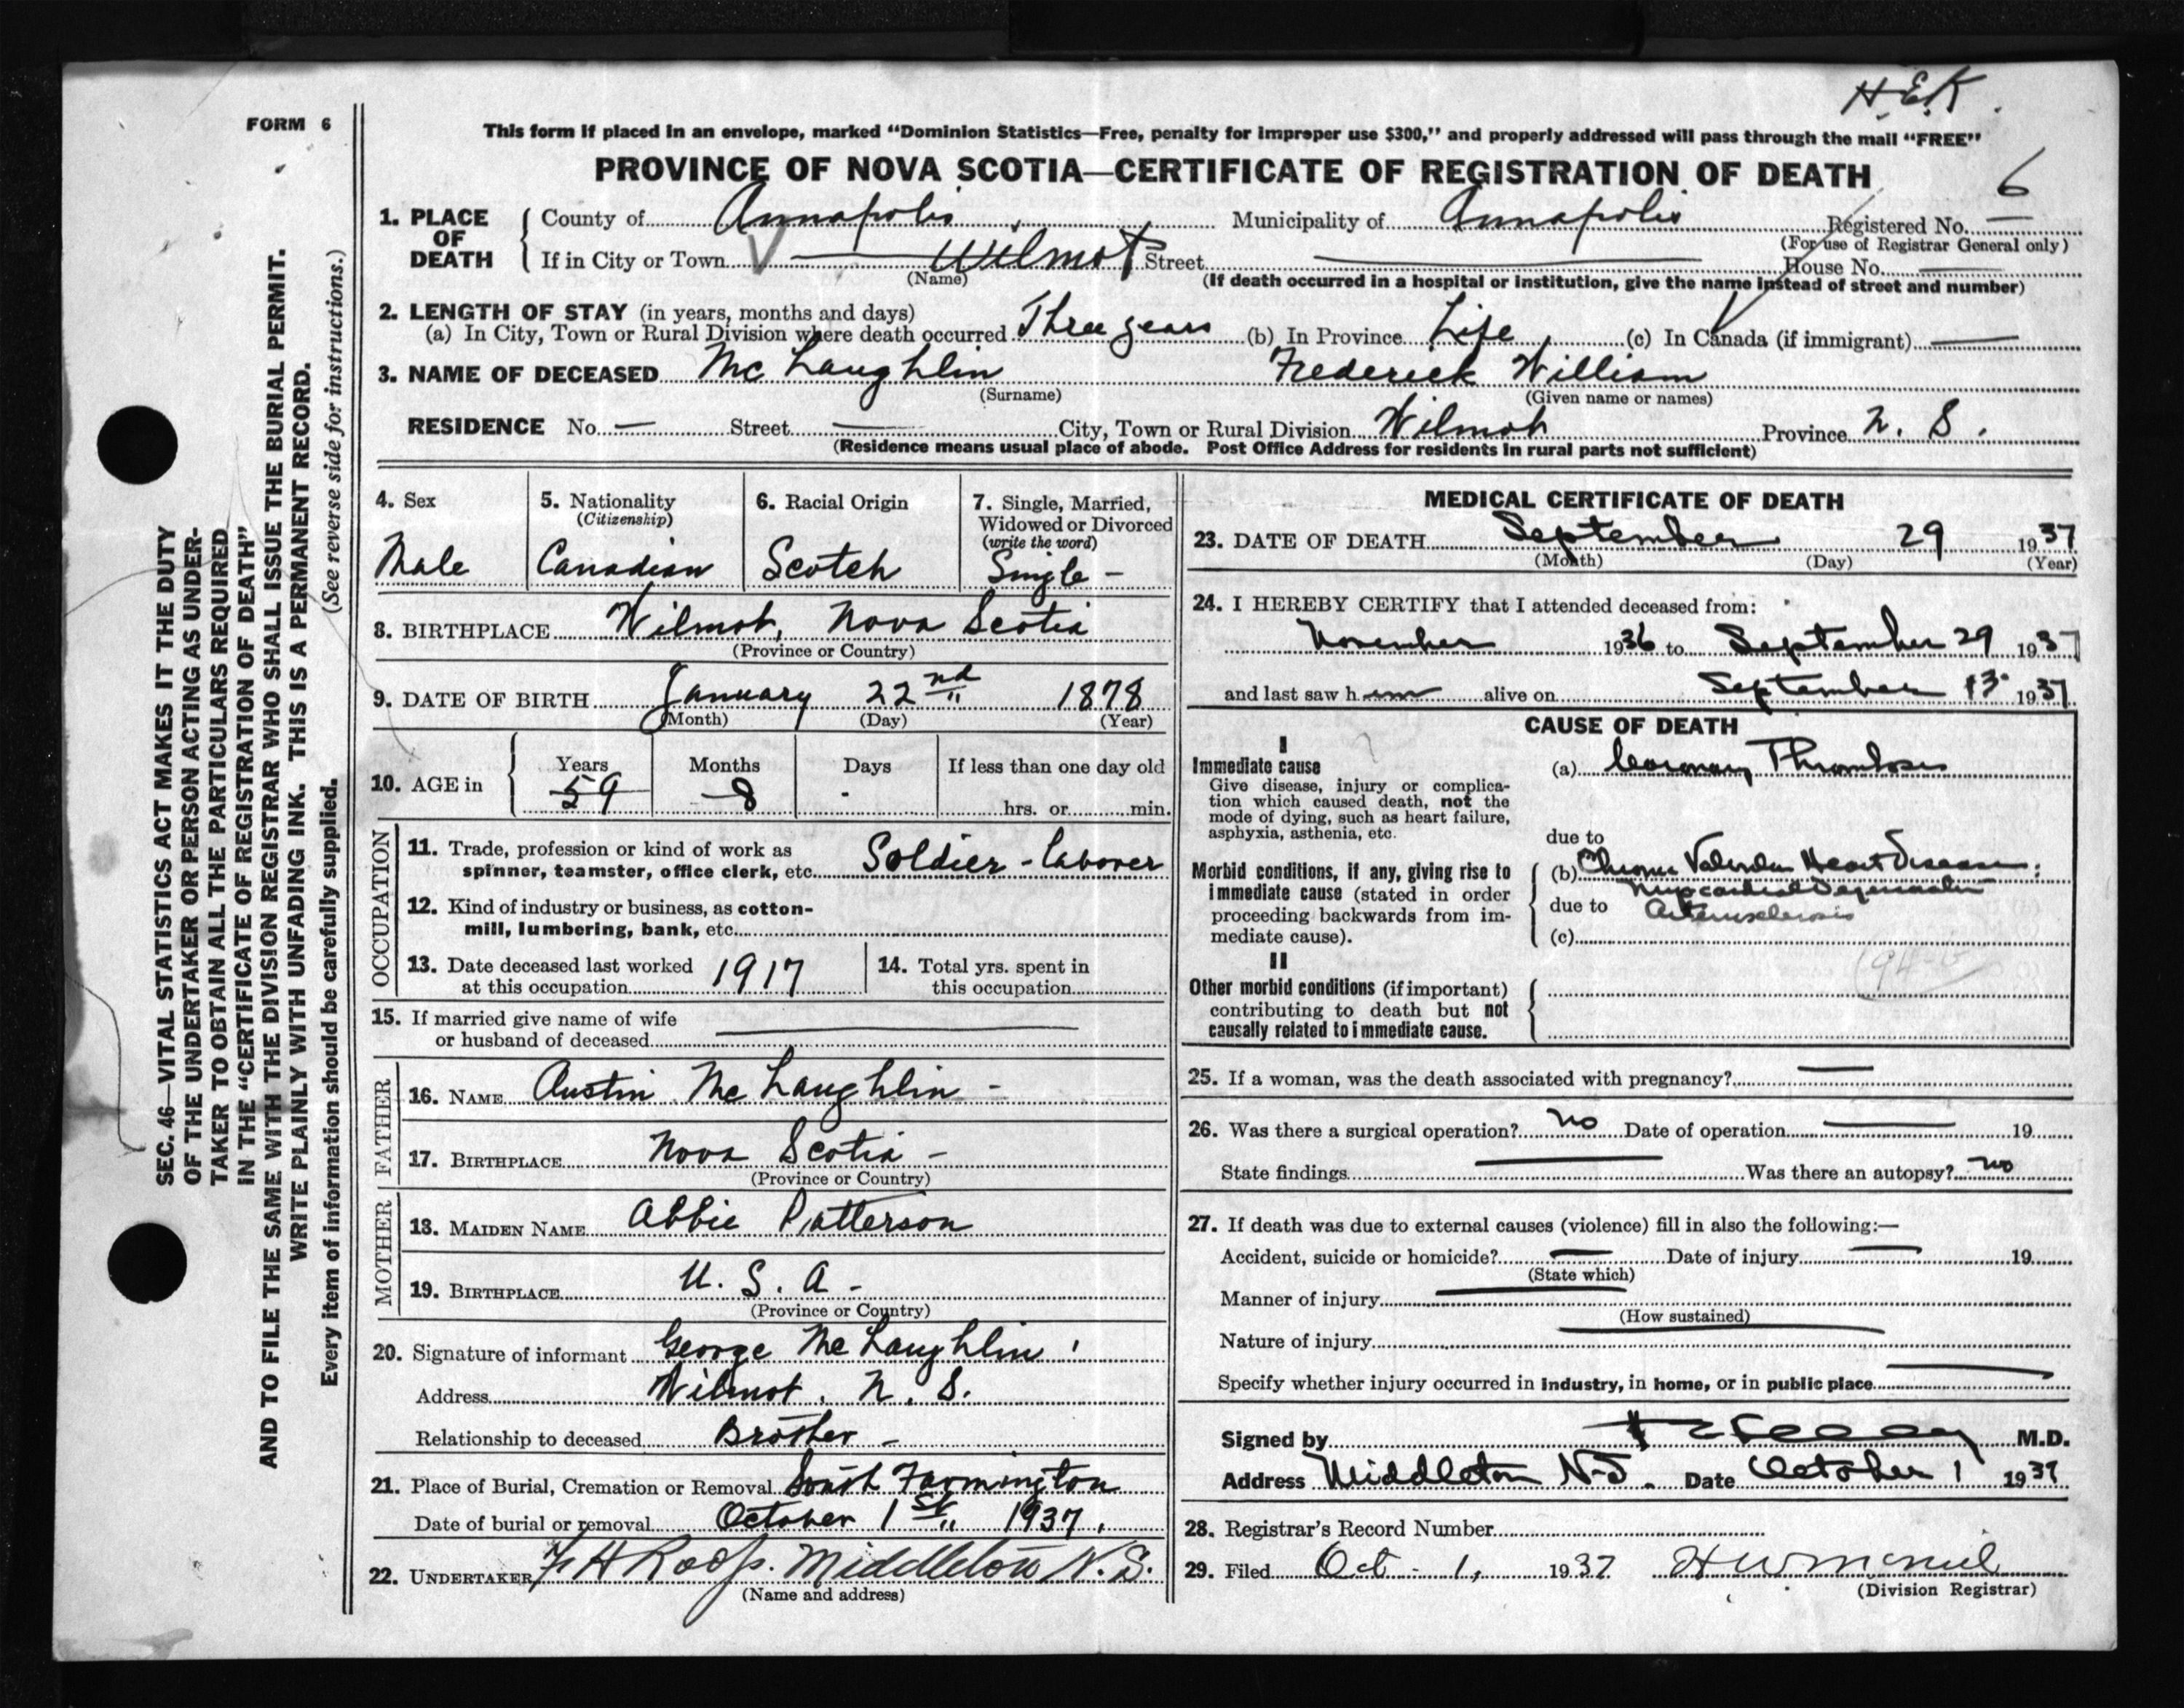 H.E.K.
FORM 6
This form if placed in an envelope, marked "Dominion Statistics—Free, penalty for improper use $300," and properly addressed will pass through the mail "FREE"
PROVINCE OF NOVA SCOTIA—CERTIFICATE OF REGISTRATION OF DEATH
1. PLACE OF DEATH
County of Annapolis Municipality of Annapolis Registered No. 6
(For use of Registrar General only)
If in City or Town Wilmot Street House No.
(Name) (If death occurred in a hospital or institution, give the name instead of street and number)
2. LENGTH OF STAY (in years, months and days)
(a) In City, Town or Rural Division where death occurred Three years (b) In Province Life (c) In Canada (if immigrant) —
3. NAME OF DECEASED McLaughlin Frederick William
(Surname) (Given name or names)
RESIDENCE No. — Street — City, Town or Rural Division Wilmot Province N. S.
(Residence means usual place of abode. Post Office Address for residents in rural parts not sufficient)
4. Sex
Male
5. Nationality
(Citizenship)
Canadian
6. Racial Origin
Scotch
7. Single, Married,
Widowed or Divorced
(write the word)
Single –
8. BIRTHPLACE Wilmot, Nova Scotia
(Province or Country)
9. DATE OF BIRTH January 22nd 1878
(Month) (Day) (Year)
10. AGE in
Years Months Days If less than one day old
59 8 - hrs. or min.
OCCUPATION
11. Trade, profession or kind of work as
spinner, teamster, office clerk, etc. Soldier - laborer
12. Kind of industry or business, as cotton-
mill, lumbering, bank, etc.
13. Date deceased last worked
at this occupation 1917
14. Total yrs. spent in
this occupation
15. If married give name of wife
or husband of deceased —
FATHER
16. NAME Austin McLaughlin –
17. BIRTHPLACE Nova Scotia –
(Province or Country)
MOTHER
18. MAIDEN NAME Abbie Patterson
19. BIRTHPLACE U. S. A –
(Province or Country)
20. Signature of informant George McLaughlin
Address Wilmot, N. S.
Relationship to deceased Brother –
21. Place of Burial, Cremation or Removal South Farmington
Date of burial or removal October 1st 1937.
22. UNDERTAKER F H Roop. Middleton N.S.
(Name and address)
MEDICAL CERTIFICATE OF DEATH
23. DATE OF DEATH September 29 1937
(Month) (Day) (Year)
24. I HEREBY CERTIFY that I attended deceased from:
November 1936 to September 29 1937
and last saw him alive on September 13 1937
CAUSE OF DEATH
I
Immediate cause
Give disease, injury or complica-
tion which caused death, not the
mode of dying, such as heart failure,
asphyxia, asthenia, etc.
(a) Coronary Thrombosis
due to
Morbid conditions, if any, giving rise to
immediate cause (stated in order
proceeding backwards from im-
mediate cause).
(b) Chronic Valvular Heart Disease;
Myocardial Degeneration
due to Arteriosclerosis
(c)
II
Other morbid conditions (if important)
contributing to death but not
causally related to immediate cause.
25. If a woman, was the death associated with pregnancy? —
26. Was there a surgical operation? no Date of operation — 19
State findings — Was there an autopsy? no
27. If death was due to external causes (violence) fill in also the following:—
Accident, suicide or homicide? — Date of injury — 19
(State which)
Manner of injury —
(How sustained)
Nature of injury —
Specify whether injury occurred in industry, in home, or in public place —
Signed by M.D.
Address Middleton N.S. Date October 1 1937
28. Registrar's Record Number
29. Filed Oct - 1, 1937 H W McNeil
(Division Registrar)
SEC. 46—VITAL STATISTICS ACT MAKES IT THE DUTY
OF THE UNDERTAKER OR PERSON ACTING AS UNDER-
TAKER TO OBTAIN ALL THE PARTICULARS REQUIRED
IN THE "CERTIFICATE OF REGISTRATION OF DEATH"
AND TO FILE THE SAME WITH THE DIVISION REGISTRAR WHO SHALL ISSUE THE BURIAL PERMIT.
WRITE PLAINLY WITH UNFADING INK. THIS IS A PERMANENT RECORD.
Every item of information should be carefully supplied. (See reverse side for instructions.)